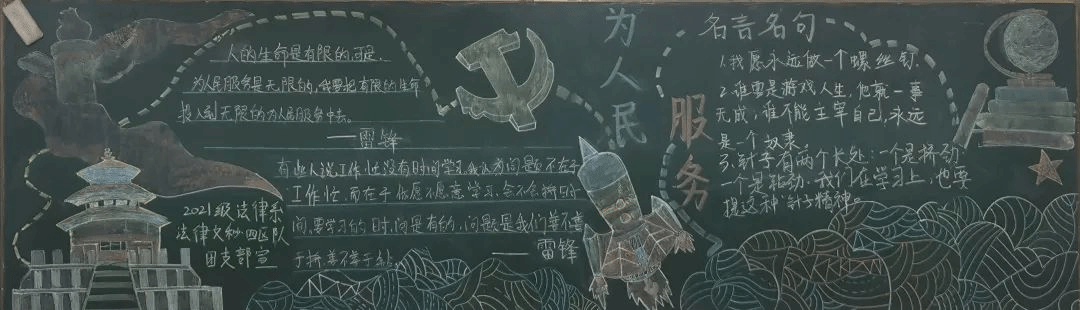 人的生命是有限的,可是,
为人民服务是无限的,我要把有限的生命
投入到无限的为人民服务中去。
——雷锋
有些人说工作忙没有时间学习,我认为问题不在于
工作忙,而在于你愿不愿意学习,会不会挤时
间,要学习的时间是有的,问题是我们善不善
于挤,愿不愿意钻。
——雷锋
2021级法律系
法律文秘四区队
团支部宣
为人民
服务
名言名句
1.我愿永远做一个螺丝钉.
2.谁要是游戏人生,他就一事
无成,谁不能主宰自己,永远
是一个奴隶。
3.钉子有两个长处:一个是挤劲.
一个是钻劲.我们在学习上,也要
提这种"钉子精神"。